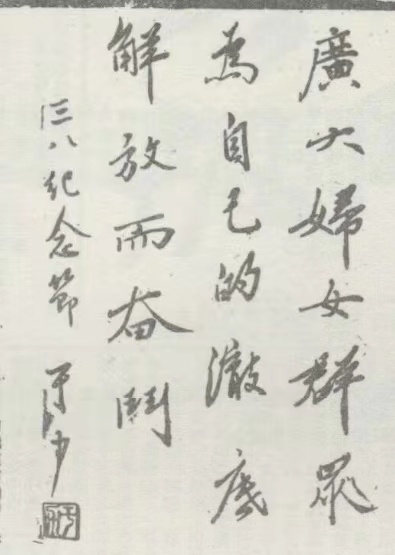 廣大婦女群眾
為自己的澈底
解放而奋鬥
三八紀念節